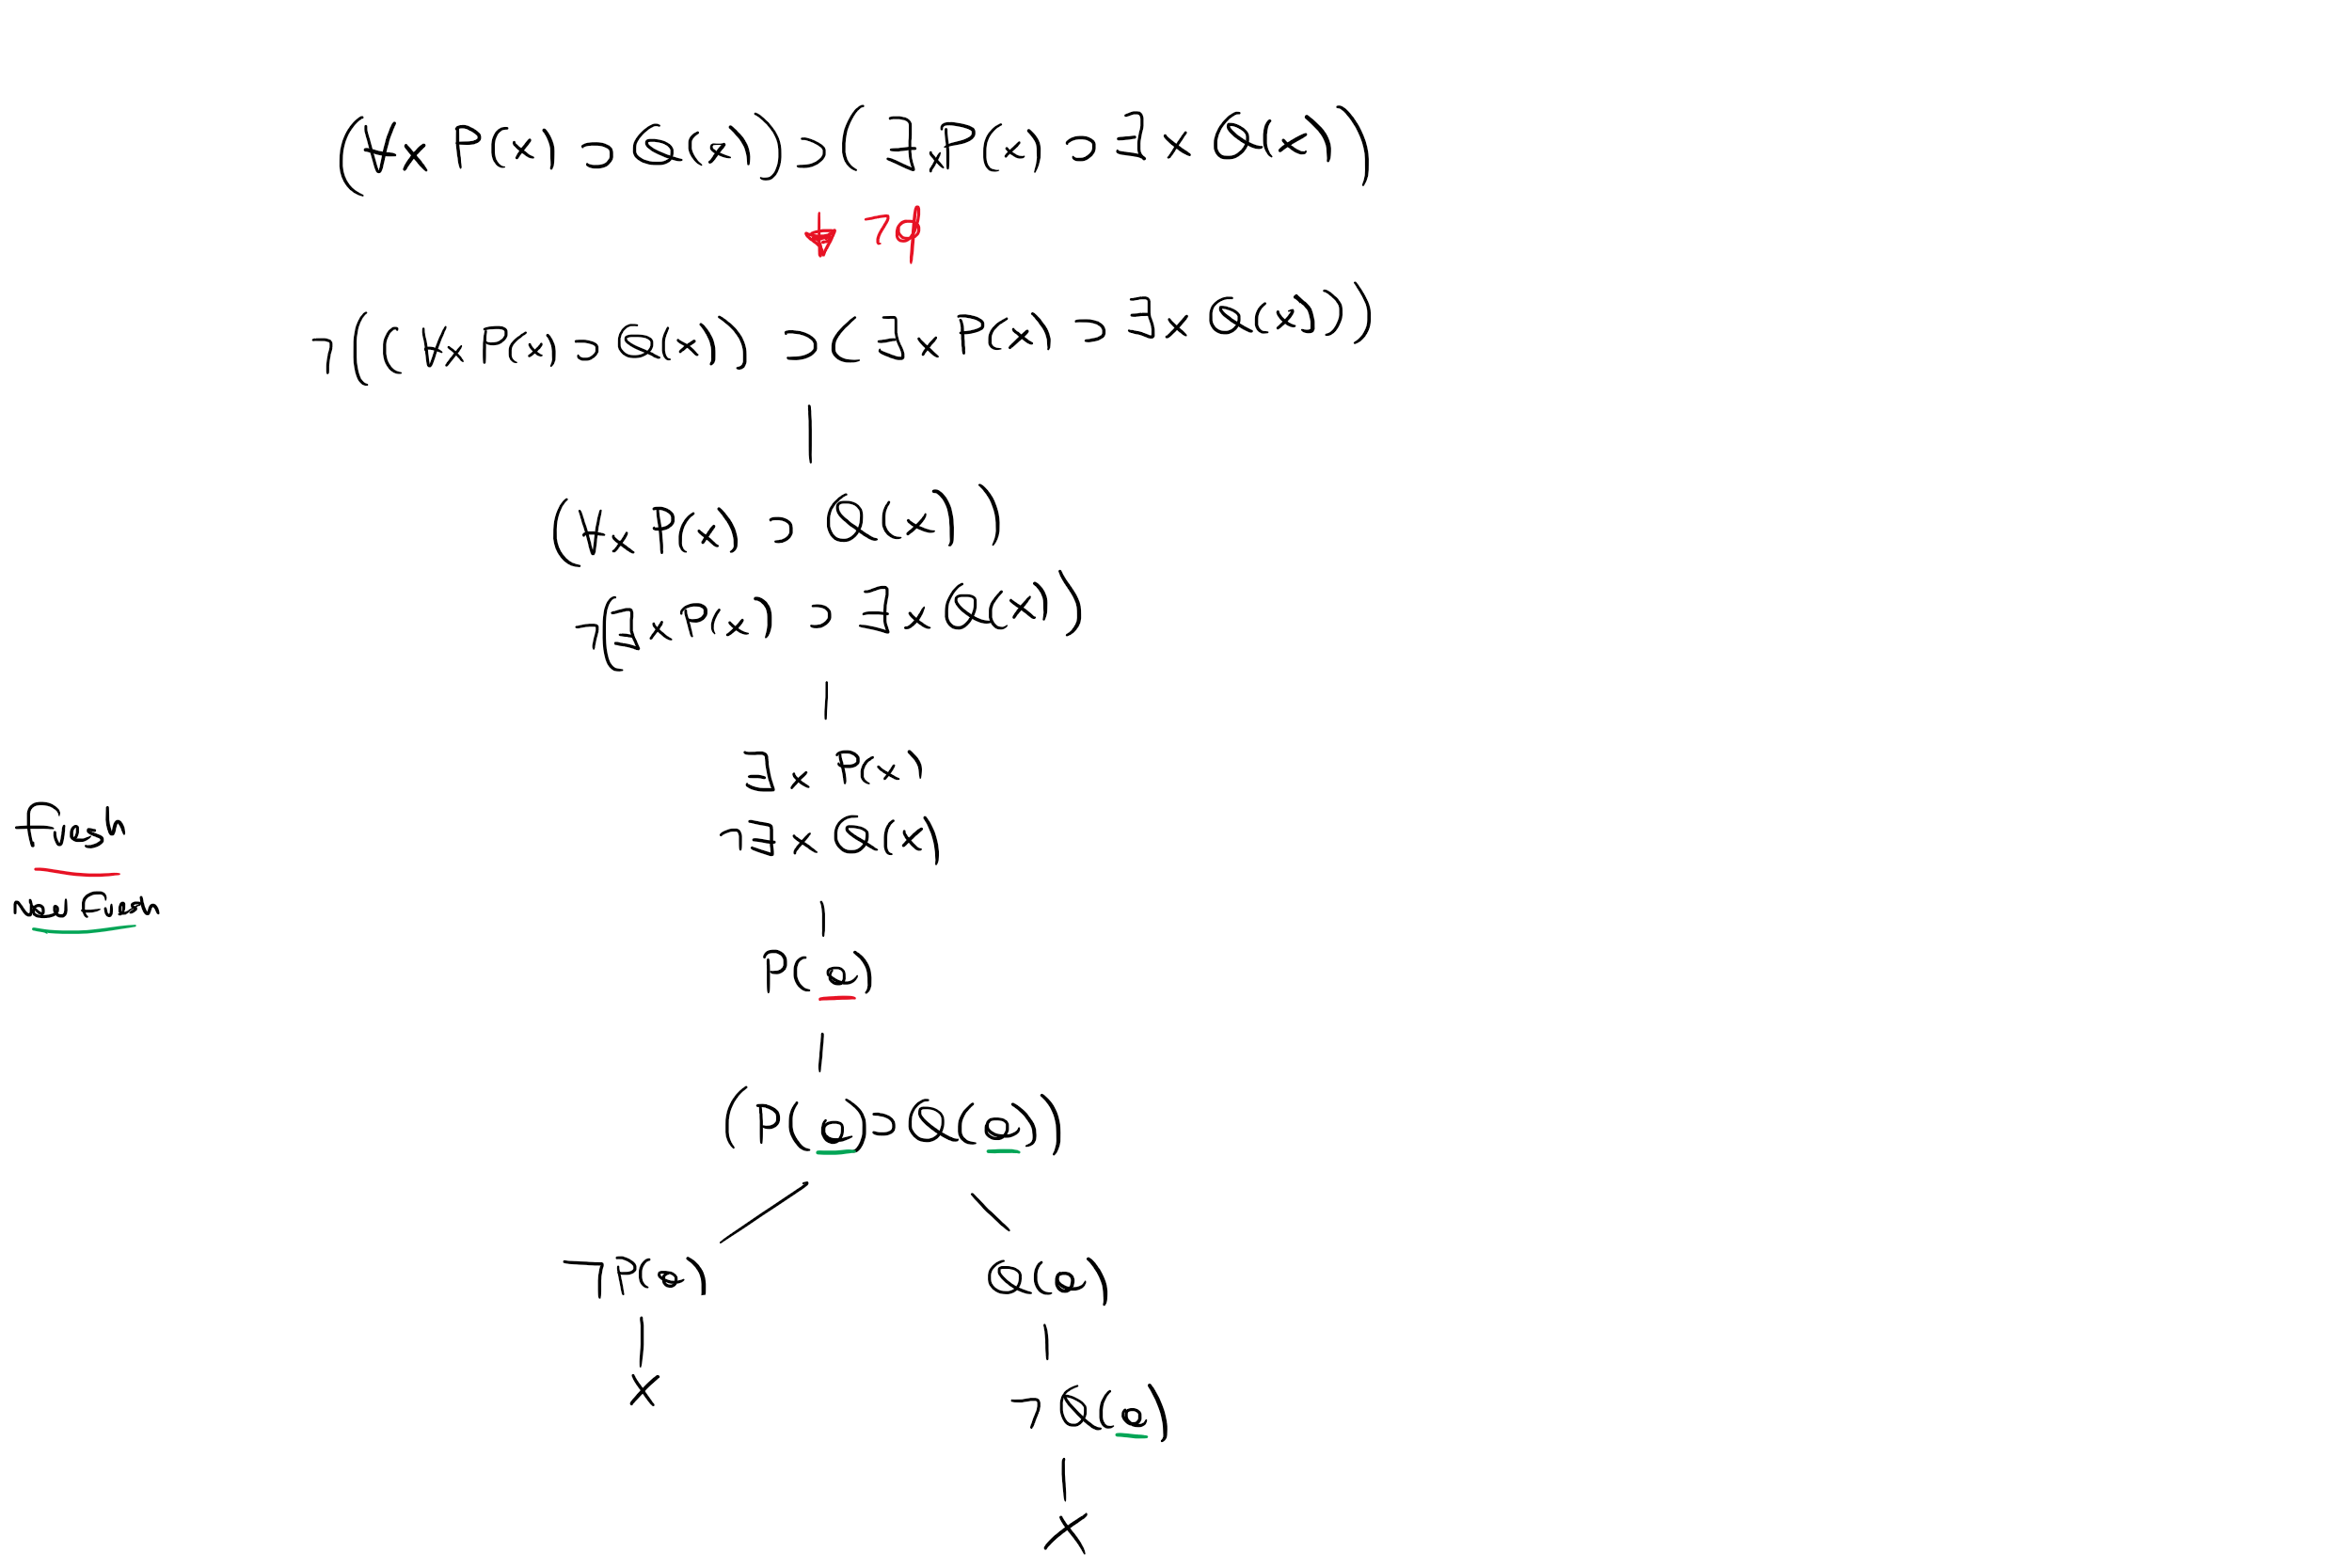 (∀x P(x) ⊃ Q(x)) ⊃ (∃x P(x) ⊃ ∃x Q(x))
¬φ
¬((∀x P(x) ⊃ Q(x)) ⊃ (∃x P(x) ⊃ ∃x Q(x)))
(∀x P(x) ⊃ Q(x))
¬(∃x P(x) ⊃ ∃x Q(x))
∃x P(x)
¬∃x Q(x)
fresh
non fresh
P(a)
(P(a) ⊃ Q(a))
¬P(a) Q(a)
X
¬Q(a)
X